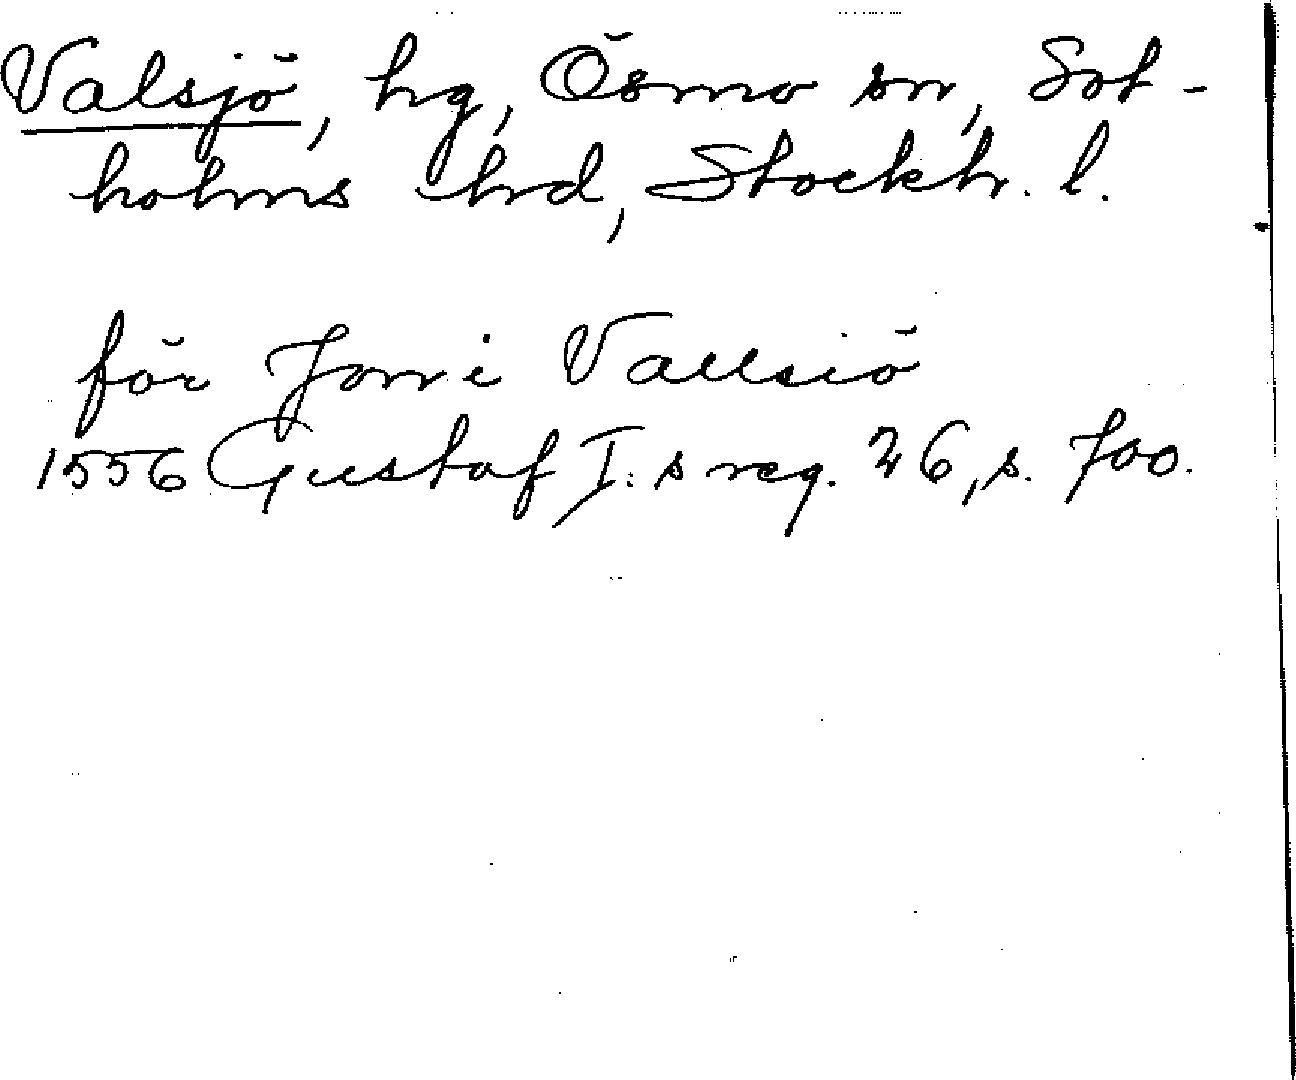 Valsjö, hg, Ösmo sn, Sot-
holms hrd, Stockh. l.
för Jon i Vallsiö
1556 Gustaf I:s reg. 26, s. 700.